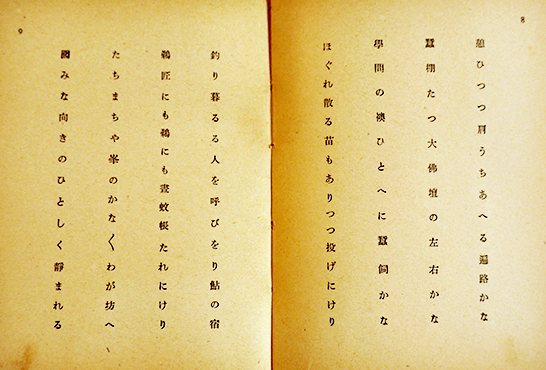 8
憩ひつつ肩うちあへる遍路かな
蠶棚たつ大佛壇の左右かな
學問の襖ひとへに蠶飼かな
ほぐれ散る苗もありつつ投げにけり
9
釣り暮るる人を呼びをり鮎の宿
鵜匠にも鵜にも晝蚊帳たれにけり
たちまちや峯のかな〱わが坊へ
みな向きのひとしく靜まれる